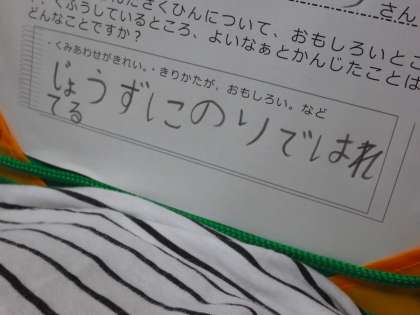 さん
くふうしているところ、よいなぁとかんじたことは
どんなことですか？
・くみあわせがきれい。・きりかたが、おもしろい。など
じょうずにのりではれ
てる